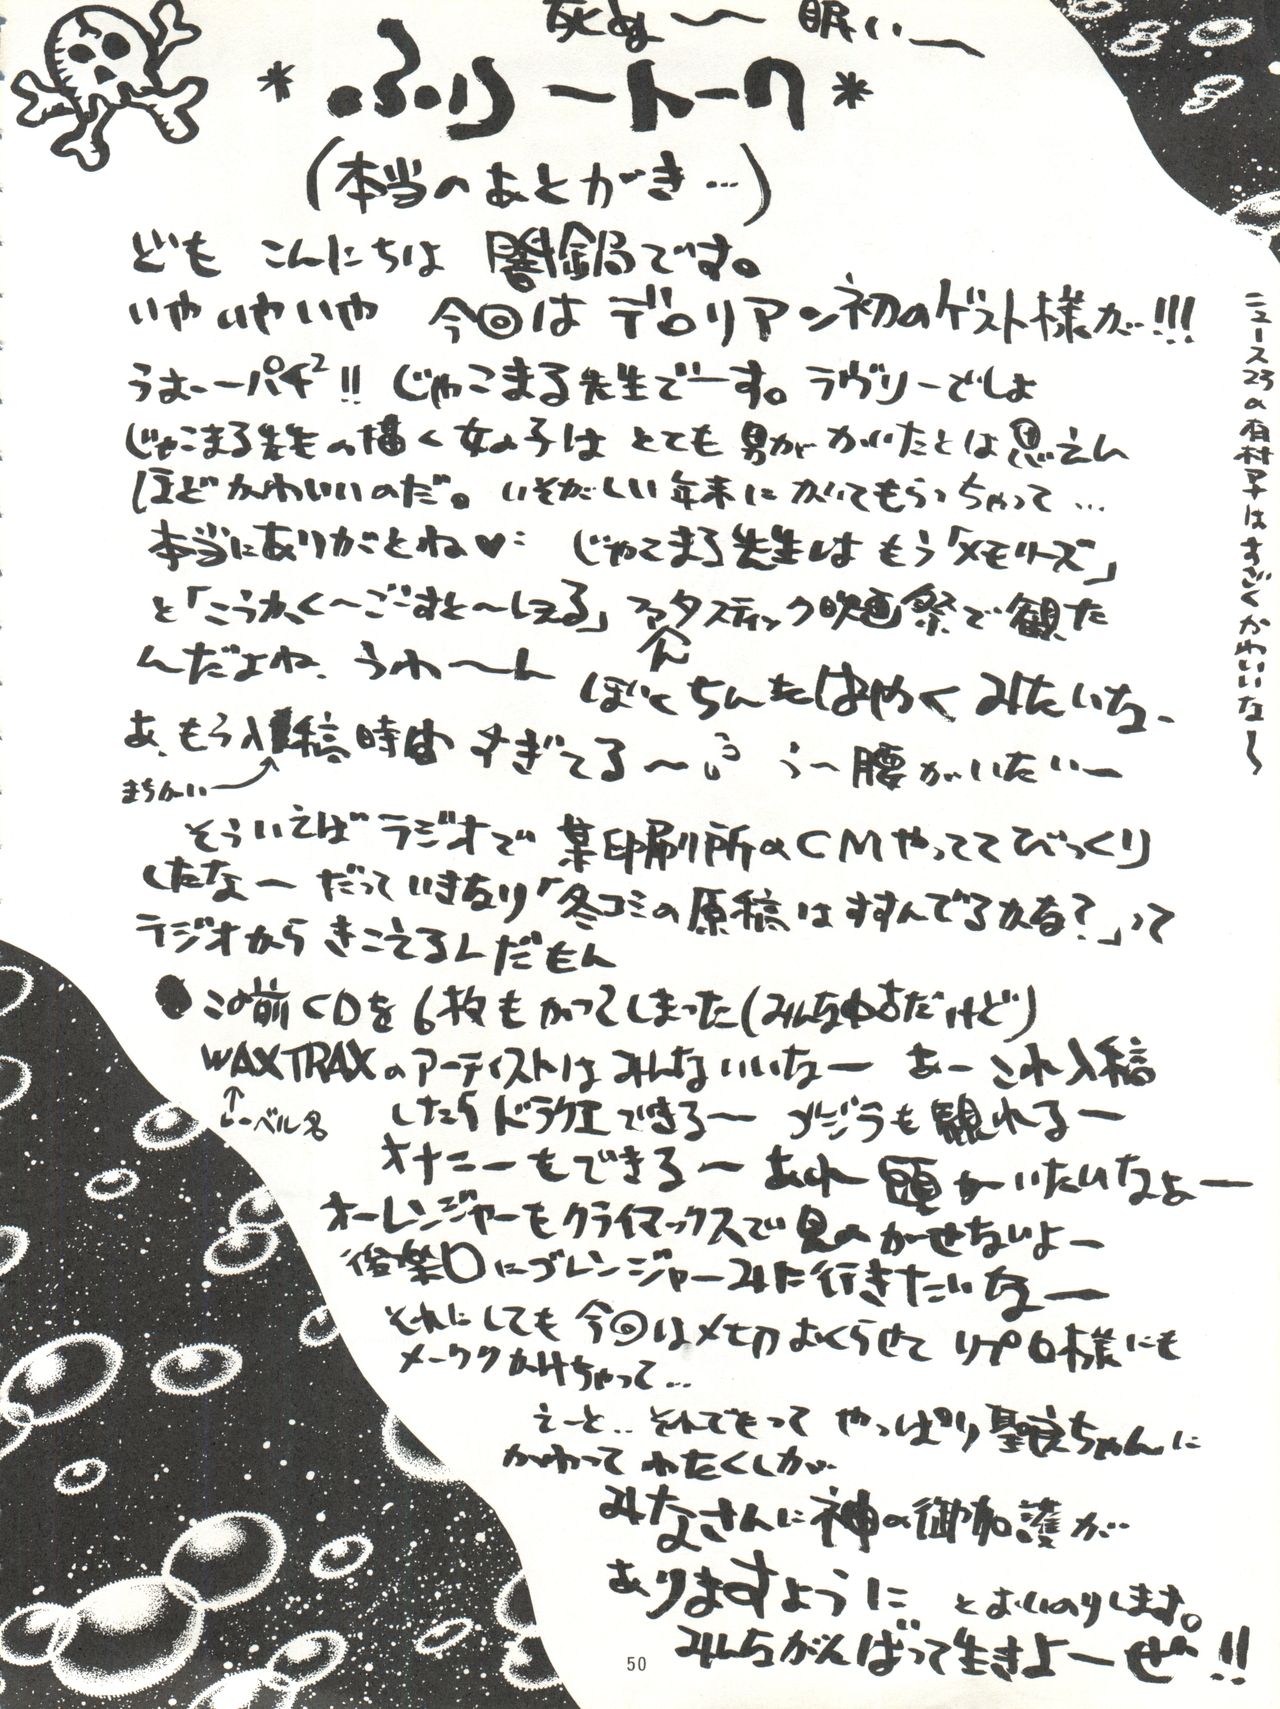 死ぬ〜 眠い〜
＊ふりートーク＊
(本当のあとがき…)
ども こんにちは 闇鍋です。
いやいやいや 今回は デロリアン初のゲスト様が!!!
うおーパチ²!! じゃこまる先生でーす。ラヴリーでしょ
じゃこまる先生の描く女の子は とても 男が かいたとは思えん
ほど かわいいのだ。いそがしい 年末に かいてもらっちゃって…
本当にありがとね♥ じゃこまる先生は もう「メモリーズ」
と「こうかく〜ごーすと〜しぇる」ファンタスティック映画祭で観た
んだよね、うわ〜ん ぼくちんもはやく みたいな、
あ、もう入稿時間 すぎてる〜 う〜腰がいたいー
まちがい
そういえば ラジオで 某印刷所のCMやっててびっくり
したなー だって いきなり「冬コミの原稿はすすんでるかな?」って
ラジオから きこえるんだもん
●この前CDを6枚もかってしまった(みんな中古だけど)
WAXTRAXのアーティストは みんないいなー あー これ入稿
レーベル名
したら ドラクエできる〜 ゴジラも観れるー
オナニーもできる〜 あれー頭がいたいなよー
オーレンジャーもクライマックスで見のがせないよー
後楽園にゴレンジャーみに行きたいなー
それにしても 今回は〆切おくらせて リプロ様にも
メーワクかけちゃって…
えーと.. それでもって やっぱり聖良ちゃんに
かわって わたくしが
みなさんに神の御加護が
ありますように とおいのりします。
みんながんばって生きよーぜ!!
ニュース23の有村アナはすごくかわいいな〜
50